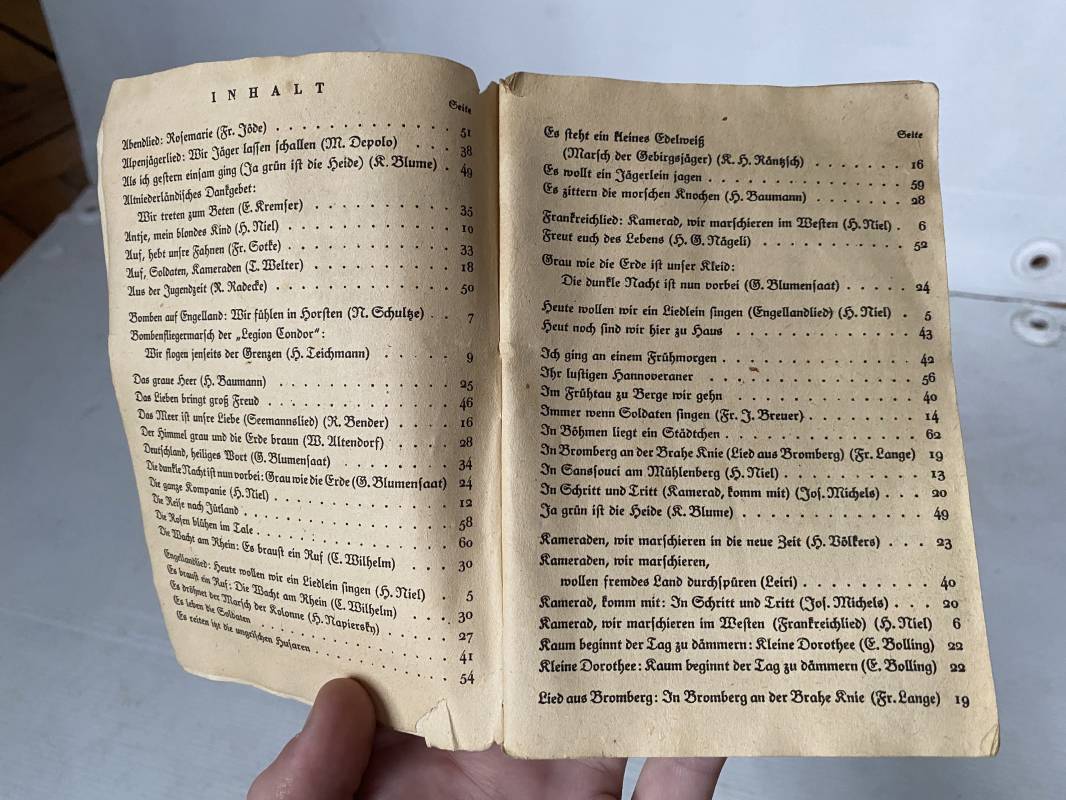 INHALT
Seite
Abendlied: Rosemarie (Fr. Jöde) . . . 51
Alpenjägerlied: Wir Jäger lassen schallen (M. Depolo) . . . 38
Als ich gestern einsam ging (Ja grün ist die Heide) (K. Blume) . 49
Altniederländisches Dankgebet:
Wir treten zum Beten (E. Kremser) . . . 35
Antje, mein blondes Kind (H. Niel) . . . 10
Auf, hebt unsre Fahnen (Fr. Sotke) . . . 33
Auf, Soldaten, Kameraden (T. Welter) . . . 18
Aus der Jugendzeit (R. Radecke) . . . 50
Bomben auf Engelland: Wir fühlen in Horsten (N. Schultze) . . 7
Bombenfliegermarsch der „Legion Condor“:
Wir flogen jenseits der Grenzen (H. Teichmann) . . . 9
Das graue Heer (H. Baumann) . . . 25
Das Lieben bringt groß Freud . . . 46
Das Meer ist unsre Liebe (Seemannslied) (R. Bender) . . . 16
Der Himmel grau und die Erde braun (W. Altendorf) . . . 28
Deutschland, heiliges Wort (G. Blumensaat) . . . 34
Die dunkle Nacht ist nun vorbei: Grau wie die Erde (G. Blumensaat) 24
Die ganze Kompanie (H. Niel) . . . 12
Die Reise nach Jütland . . . 58
Die Rosen blühen im Tale . . . 60
Die Wacht am Rhein: Es braust ein Ruf (C. Wilhelm) . . . 30
Engellandlied: Heute wollen wir ein Liedlein singen (H. Niel) . 5
Es braust ein Ruf: Die Wacht am Rhein (C. Wilhelm) . . . 30
Es dröhnet der Marsch der Kolonne (H. Napiersky) . . . 27
Es leben die Soldaten . . . 41
Es reiten itzt die ungrischen Husaren . . . 54
Seite
Es steht ein kleines Edelweiß
(Marsch der Gebirgsjäger) (K. H. Räntzsch) . . . 16
Es wollt ein Jägerlein jagen . . . 59
Es zittern die morschen Knochen (H. Baumann) . . . 28
Frankreichlied: Kamerad, wir marschieren im Westen (H. Niel) . 6
Freut euch des Lebens (H. G. Nägeli) . . . 52
Grau wie die Erde ist unser Kleid:
Die dunkle Nacht ist nun vorbei (G. Blumensaat) . . . 24
Heute wollen wir ein Liedlein singen (Engellandlied) (H. Niel) . 5
Heut noch sind wir hier zu Haus . . . 43
Ich ging an einem Frühmorgen . . . 42
Ihr lustigen Hannoveraner . . . 56
Im Frühtau zu Berge wir gehn . . . 40
Immer wenn Soldaten singen (Fr. J. Breuer) . . . 14
In Böhmen liegt ein Städtchen . . . 62
In Bromberg an der Brahe Knie (Lied aus Bromberg) (Fr. Lange) 19
In Sanssouci am Mühlenberg (H. Niel) . . . 13
In Schritt und Tritt (Kamerad, komm mit) (Jos. Michels) . . . 20
Ja grün ist die Heide (K. Blume) . . . 49
Kameraden, wir marschieren in die neue Zeit (H. Völkers) . . . 23
Kameraden, wir marschieren,
wollen fremdes Land durchspüren (Leiri) . . . 40
Kamerad, komm mit: In Schritt und Tritt (Jos. Michels) . . . 20
Kamerad, wir marschieren im Westen (Frankreichlied) (H. Niel) 6
Kaum beginnt der Tag zu dämmern: Kleine Dorothee (E. Bolling) 22
Kleine Dorothee: Kaum beginnt der Tag zu dämmern (E. Bolling) 22
Lied aus Bromberg: In Bromberg an der Brahe Knie (Fr. Lange) 19